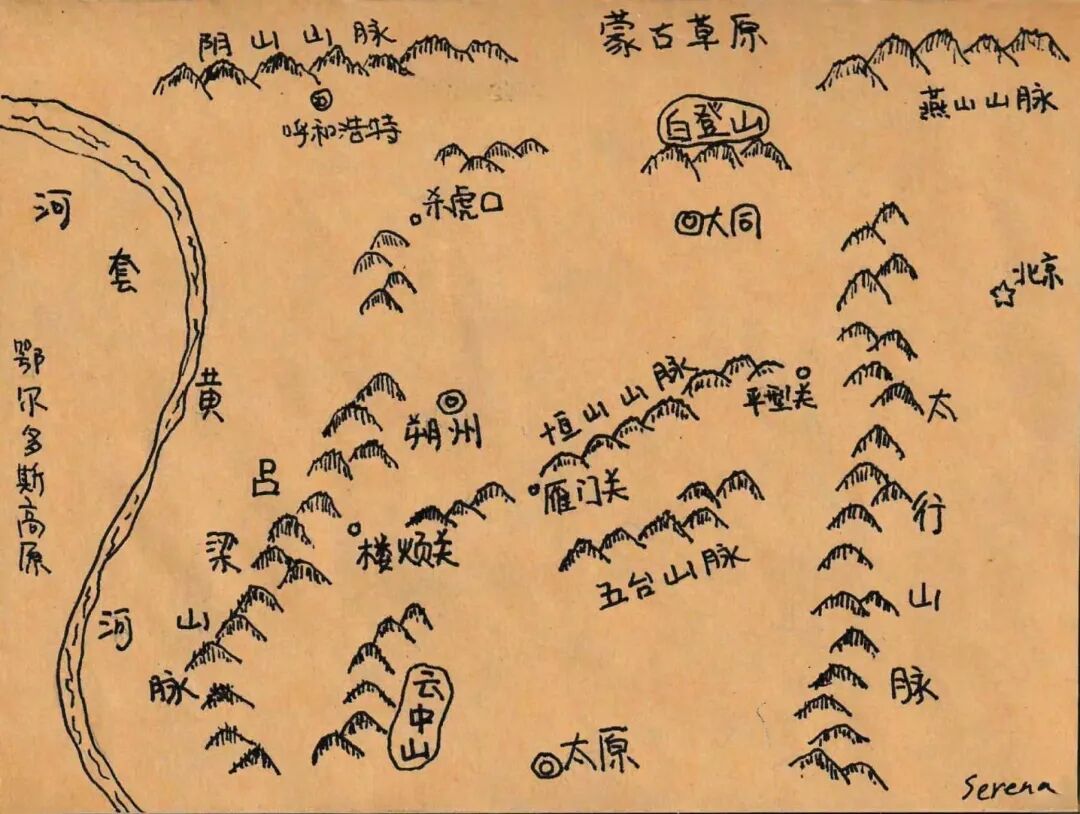 阴山山脉
蒙古草原
燕山山脉
呼和浩特
白登山
河套
杀虎口
大同
北京
鄂尔多斯高原
黄河
朔州
恒山山脉
平型关
太行山脉
吕梁山脉
雁门关
楼烦关
五台山脉
云中山
太原
Serena